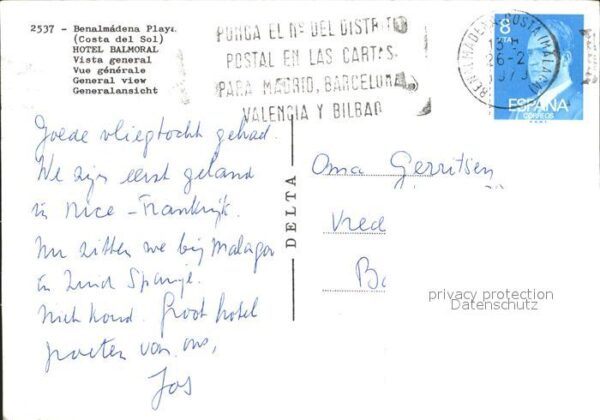 2537 - Benalmádena Playa
(Costa del Sol)
HOTEL BALMORAL
Vista general
Vue générale
General view
Generalansicht
PONGA EL Nº DEL DISTRITO
POSTAL EN LAS CARTAS
PARA MADRID, BARCELONA,
VALENCIA Y BILBAO
BENALMADENA-COSTA (MALAGA)
26-2
8
PTA
ESPAÑA
CORREOS
Goede vliegtocht gehad.
We zijn eerst geland
in Nice - Frankrijk.
Nu zitten we bij Malaga
in Zuid Spanje.
Niet koud. Groot hotel
groeten van ons,
Jos
DELTA
Oma Gerritsen
Vred
Ba
privacy protection
Datenschutz